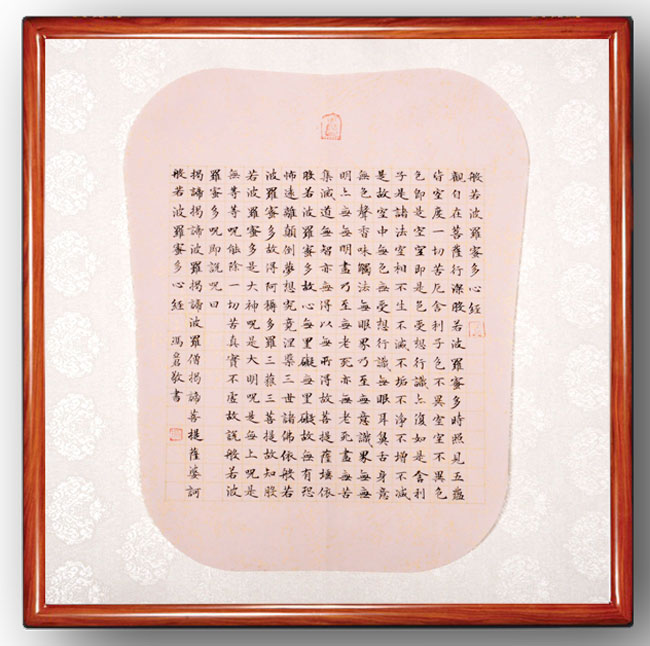 般若波羅蜜多心經
觀自在菩薩行深般若波羅蜜多時照見五蘊
皆空度一切苦厄舍利子色不異空空不異色
色即是空空即是色受想行識亦復如是舍利
子是諸法空相不生不滅不垢不淨不增不減
是故空中無色無受想行識無眼耳鼻舌身意
無色聲香味觸法無眼界乃至無意識界無無
明亦無無明盡乃至無老死亦無老死盡無苦
集滅道無智亦無得以無所得故菩提薩埵依
般若波羅蜜多故心無罣礙無罣礙故無有恐
怖遠離顛倒夢想究竟涅槃三世諸佛依般若
波羅蜜多故得阿耨多羅三藐三菩提故知般
若波羅蜜多是大神呪是大明呪是無上呪是
無等等呪能除一切苦真實不虛故說般若波
羅蜜多呪即說呪曰
揭諦揭諦波羅揭諦波羅僧揭諦菩提薩婆訶
般若波羅蜜多心經 馮 敬書